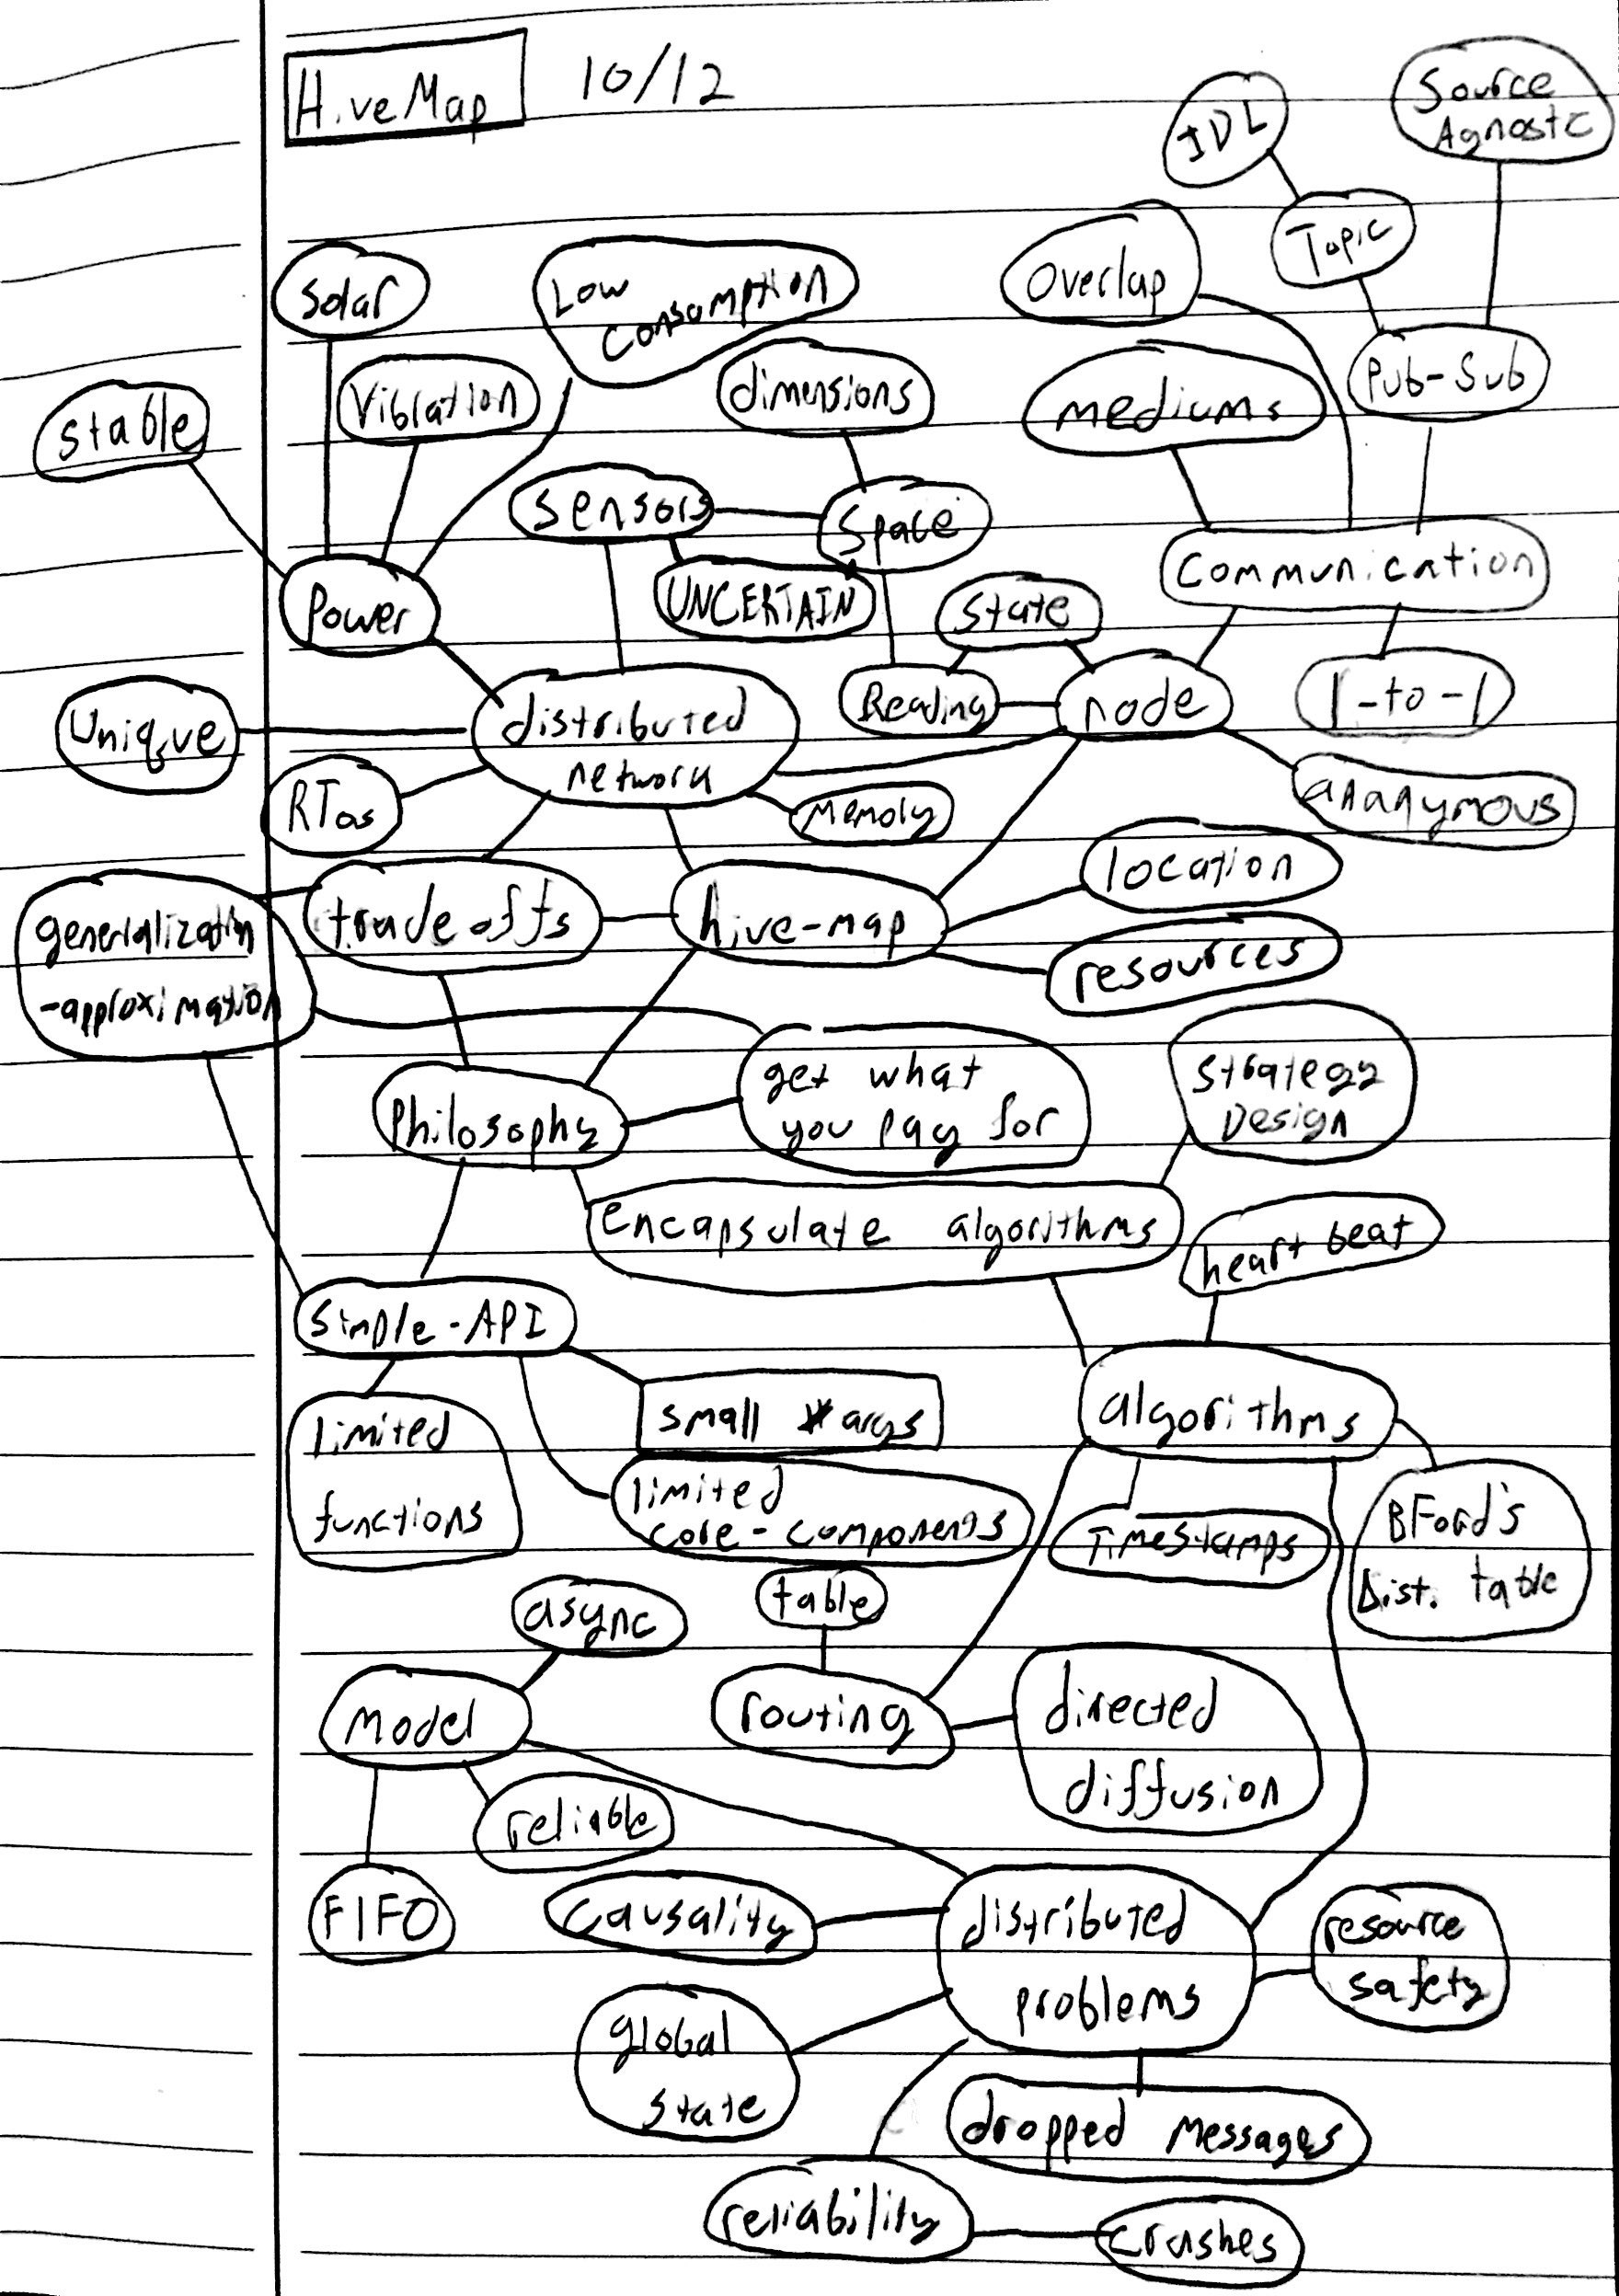 HiveMap 10/12
Source
Agnostc
IDL
Topic
Overlap
Solar
Low
Consumption
Pub-Sub
Vibration
dimensions
mediums
Stable
Sensors
Space
Communication
Power
UNCERTAIN
State
Reading
node
1-to-1
Unique
distributed
network
RTos
Memory
ananymous
location
generialization
-approximation
trade offs
hive-map
resources
Philosophy
get what
you pay for
Strategy
Design
encapsulate algorithms
heart beat
Simple-API
small # args
algorithms
limited
functions
limited
core-components
Timestamps
BFord's
Dist. table
async
table
Model
routing
directed
diffusion
reliable
FIFO
Causality
distributed
problems
resource
safety
global
state
dropped Messages
reliability
Crashes